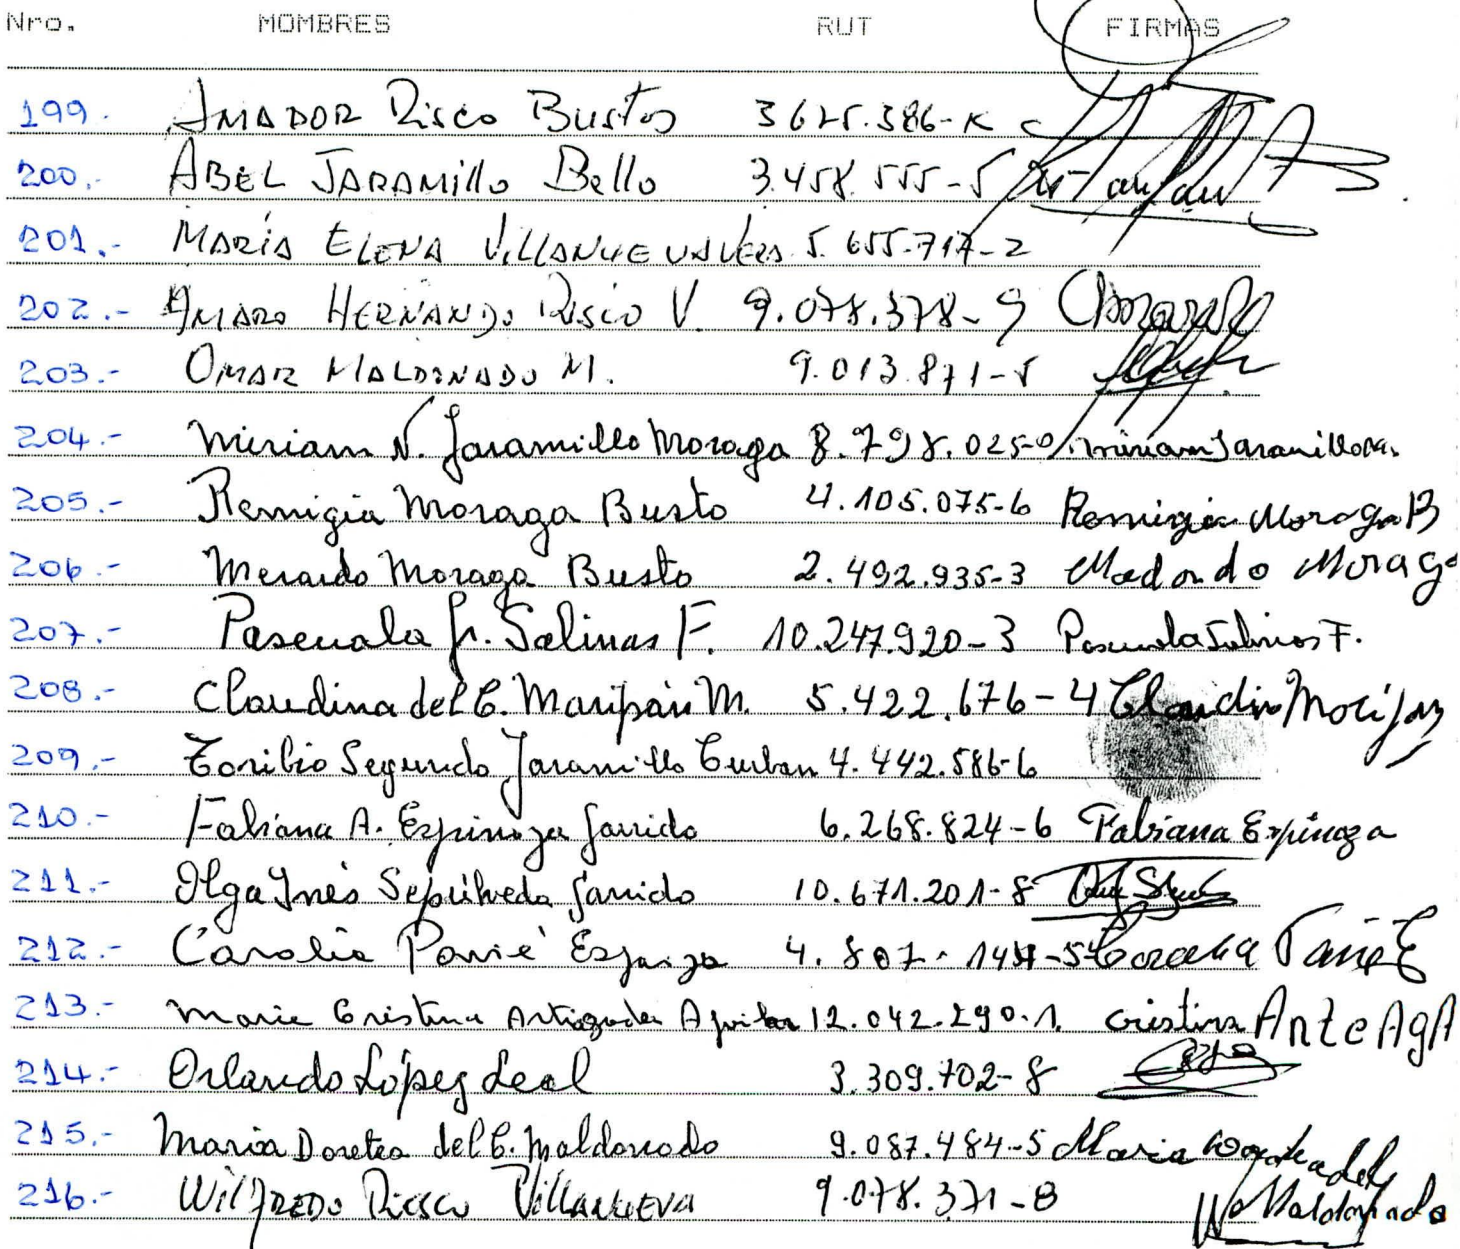 Nro. MOMBRES RUT FIRMAS
199.- AMADOR Risco Bustos 3625.386-K
200.- ABEL JARAMillo Bello 3.458.555-5
201.- MARÍA ELENA VILLANUEVA VERA 5.655.717-2
202.- AMARO HERNANDO RISCO V. 9.078.378-9
203.- OMAR MALDONADO M. 9.013.871-5
204.- Miriam N. Jaramillo Moraga 8.798.025-0 Miriam Jaramillo M.
205.- Remigia Moraga Busto 4.105.075-6 Remigia Moraga B
206.- Merardo Moraga Busto 2.492.935-3 Moraga
207.- Pascuala Jr. Salinas F. 10.247.920-3 Pascuala Salinas F.
208.- Claudina del C. Maripán M. 5.422.676-4
209.- Toribio Segundo Jaramillo 4.442.586-6
210.- Fabiana A. Espinoza Garrido 6.268.824-6 Fabiana Espinoza
211.- Olga Inés Sepúlveda Garrido 10.671.201-8
212.- Carolia Parié 4.807.
213.- Marie Cristina 12.042.290-1. Cristina AnteAgA
214.- Orlando López Leal 3.309.702-8
215.- Maria Doretea del C. Maldonado 9.087.484-5 Maria Maldonado
216.- WilFREDO Riesco VillANUEVA 9.078.371-8